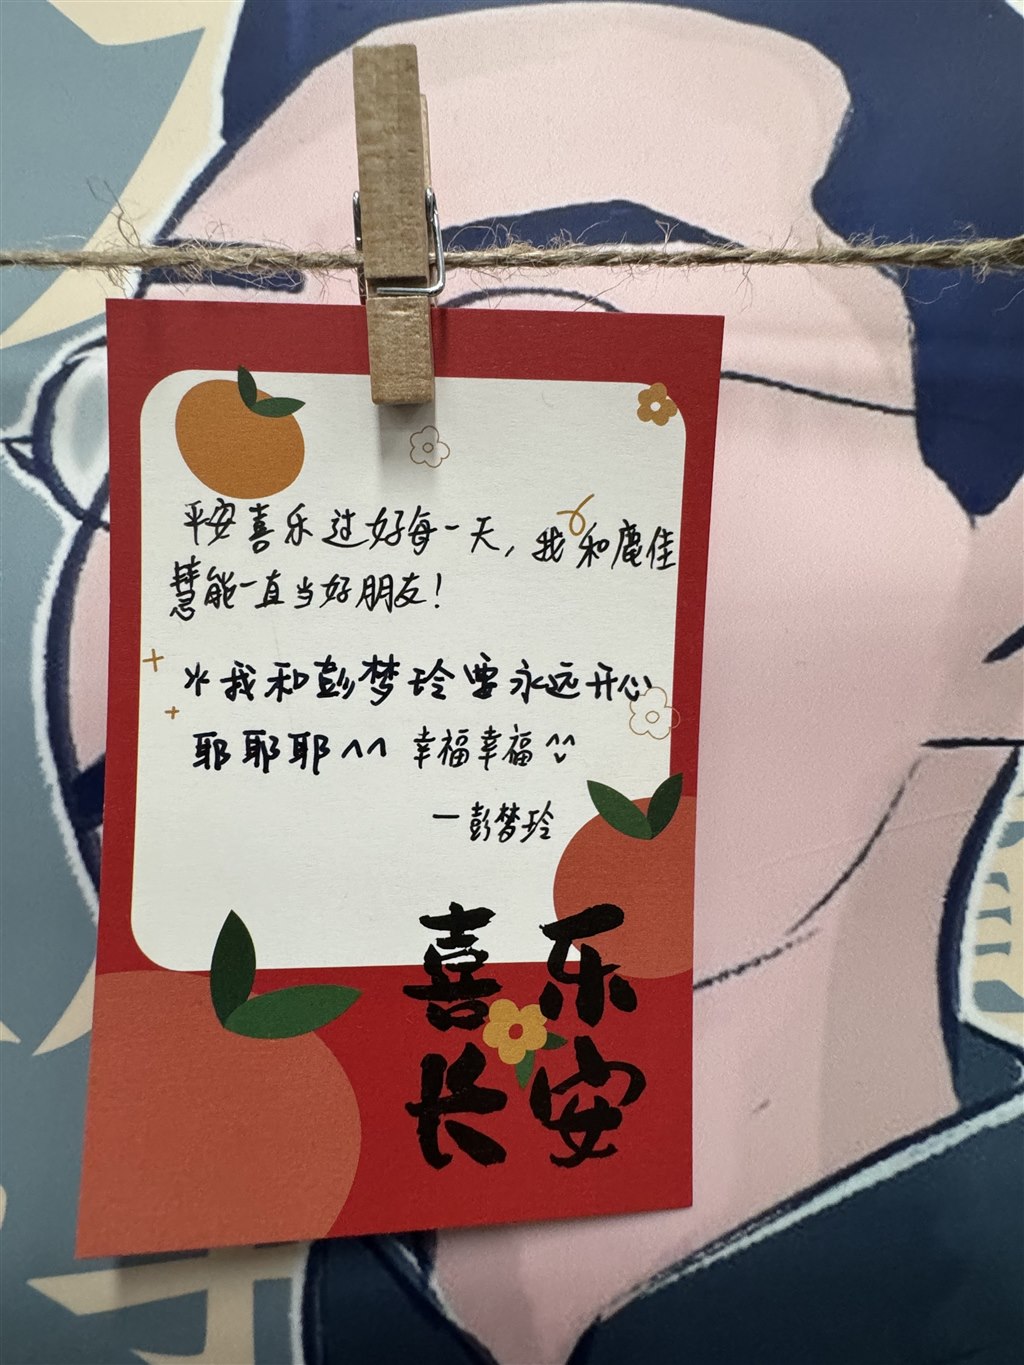 平安喜乐过好每一天，我和庞佳
慧能一直当好朋友！
我和彭梦玲要永远开心
耶耶耶^^ 幸福幸福^^
—彭梦玲
喜乐
长安